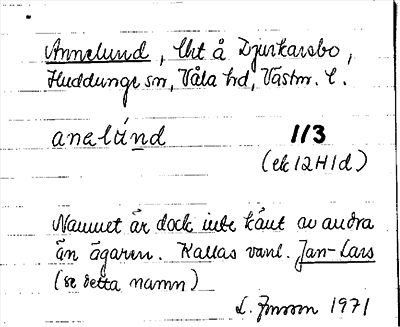 Annelund, lht å Djurkarsbo,
Huddunge sn, Våla hd, Västm. l.
anelúnd 113
(ek 12H1d)
Namnet är dock inte känt av andra
än ägaren. Kallas vanl. Jan-Lars
(se detta namn)
L. Jonson 1971